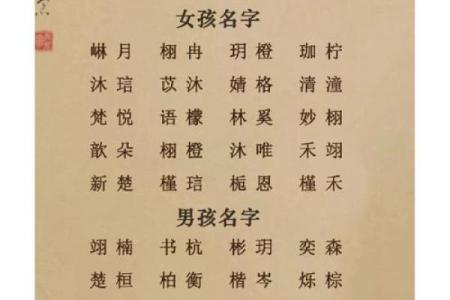 女孩名字
崊月 栩冉 玥橙 珈柠
沐琂 苡沐 婧格 清潼
梵悦 语檬 林奚 妙栩
歆朵 栩橙 沐唯 禾翊
新楚 槿琂 栀恩 槿禾
男孩名字
翊楠 书杭 彬玥 奕森
楚桓 柏衡 楷岑 烁棕